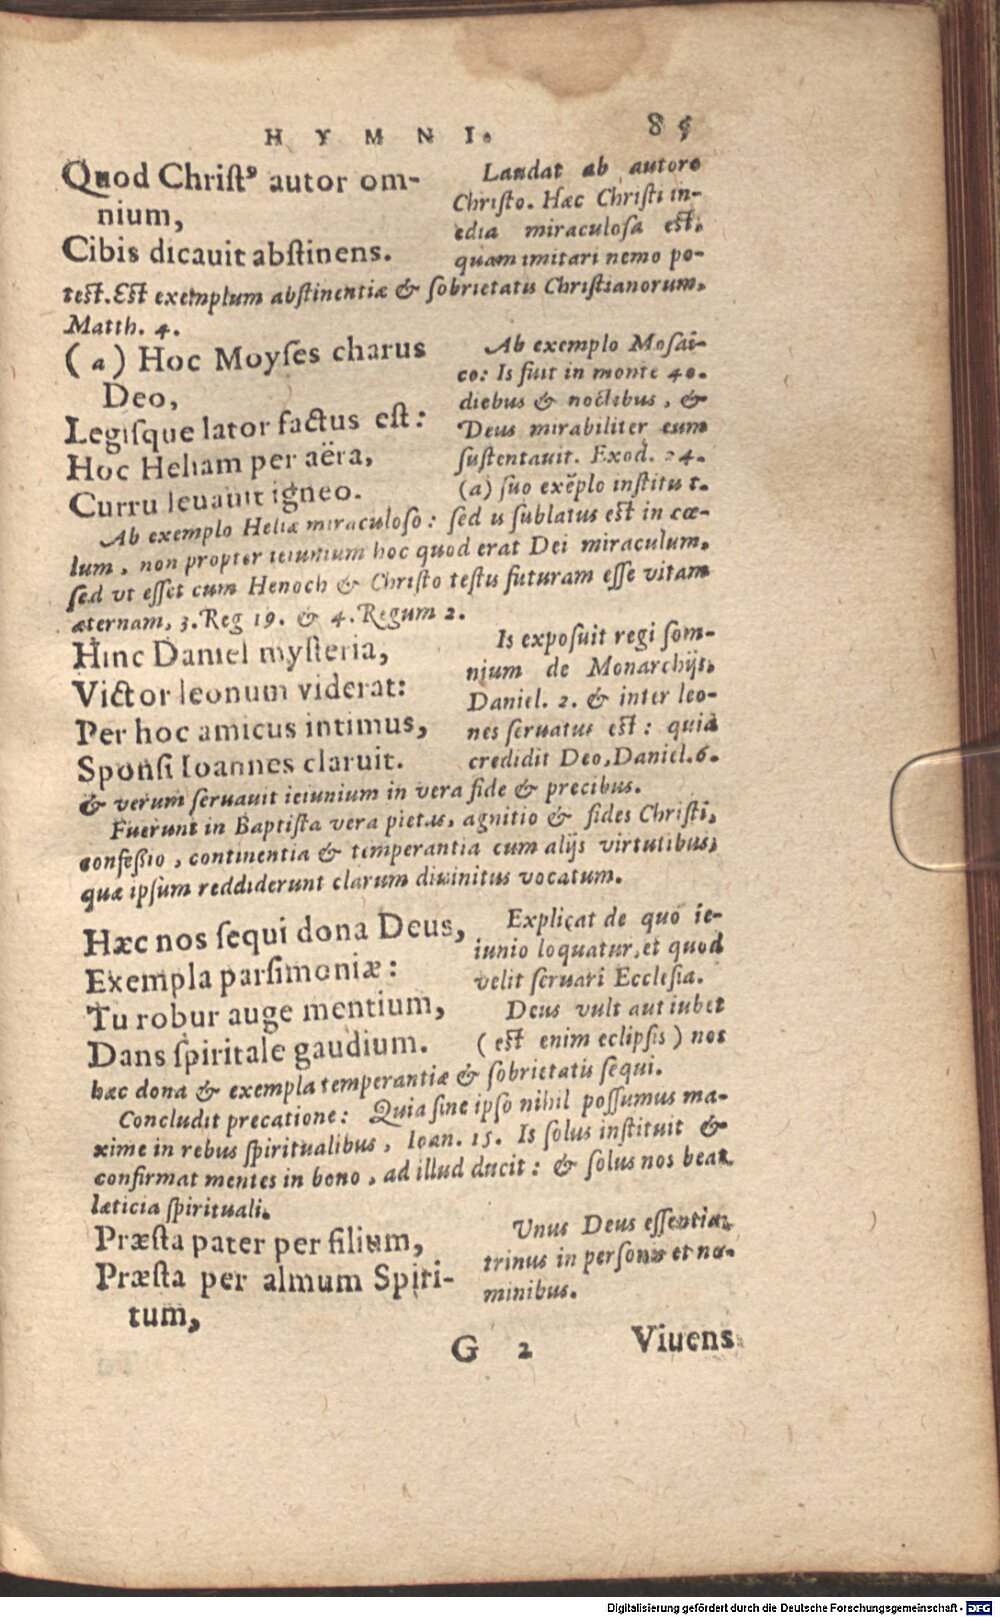 HYMNI. 85
Quod Christꝰ autor om-
nium,
Cibis dicauit abstinens.
Laudat ab autore
Christo. Hæc Christi in-
edia miraculosa est,
quam imitari nemo po-
test. Est exemplum abstinentiæ & sobrietatis Christianorum,
Matth. 4.
(a) Hoc Moyses charus
Deo,
Legisque lator factus est:
Hoc Heliam per aëra,
Curru leuauit igneo.
Ab exemplo Mosai-
co: Is fuit in monte 40.
diebus & noctibus, &
Deus mirabiliter eum
sustentauit. Exod. 24.
(a) suo exẽplo institu t.
Ab exemplo Heliæ miraculoso: sed is sublatus est in cœ-
lum, non propter ieiunium hoc quod erat Dei miraculum,
sed vt esset cum Henoch & Christo testis futuram esse vitam
æternam, 3. Reg 19. & 4. Regum 2.
Hinc Daniel mysteria,
Victor leonum viderat:
Per hoc amicus intimus,
Sponsi Ioannes claruit.
Is exposuit regi som-
nium de Monarchijs,
Daniel. 2. & inter leo-
nes seruatus est: quia
credidit Deo, Daniel. 6.
& verum seruauit ieiunium in vera fide & precibus.
Fuerunt in Baptista vera pietas, agnitio & fides Christi,
confessio, continentia & temperantia cum alijs virtutibus,
quæ ipsum reddiderunt clarum diuinitus vocatum.
Hæc nos sequi dona Deus,
Exempla parsimoniæ:
Tu robur auge mentium,
Dans spiritale gaudium.
Explicat de quo ie-
iunio loquatur, et quod
velit seruari Ecclesia.
Deus vult aut iubet
(est enim eclipsis) nos
hæc dona & exempla temperantiæ & sobrietatis sequi.
Concludit precatione: Quia sine ipso nihil possumus ma-
xime in rebus spiritualibus, Ioan. 15. Is solus instituit &
confirmat mentes in bono, ad illud ducit: & solus nos beat
læticia spirituali.
Præsta pater per filium,
Præsta per almum Spiri-
tum,
Unus Deus essentia,
trinus in personis et no-
minibus.
G 2 Viuens
Digitalisierung gefördert durch die Deutsche Forschungsgemeinschaft - DFG